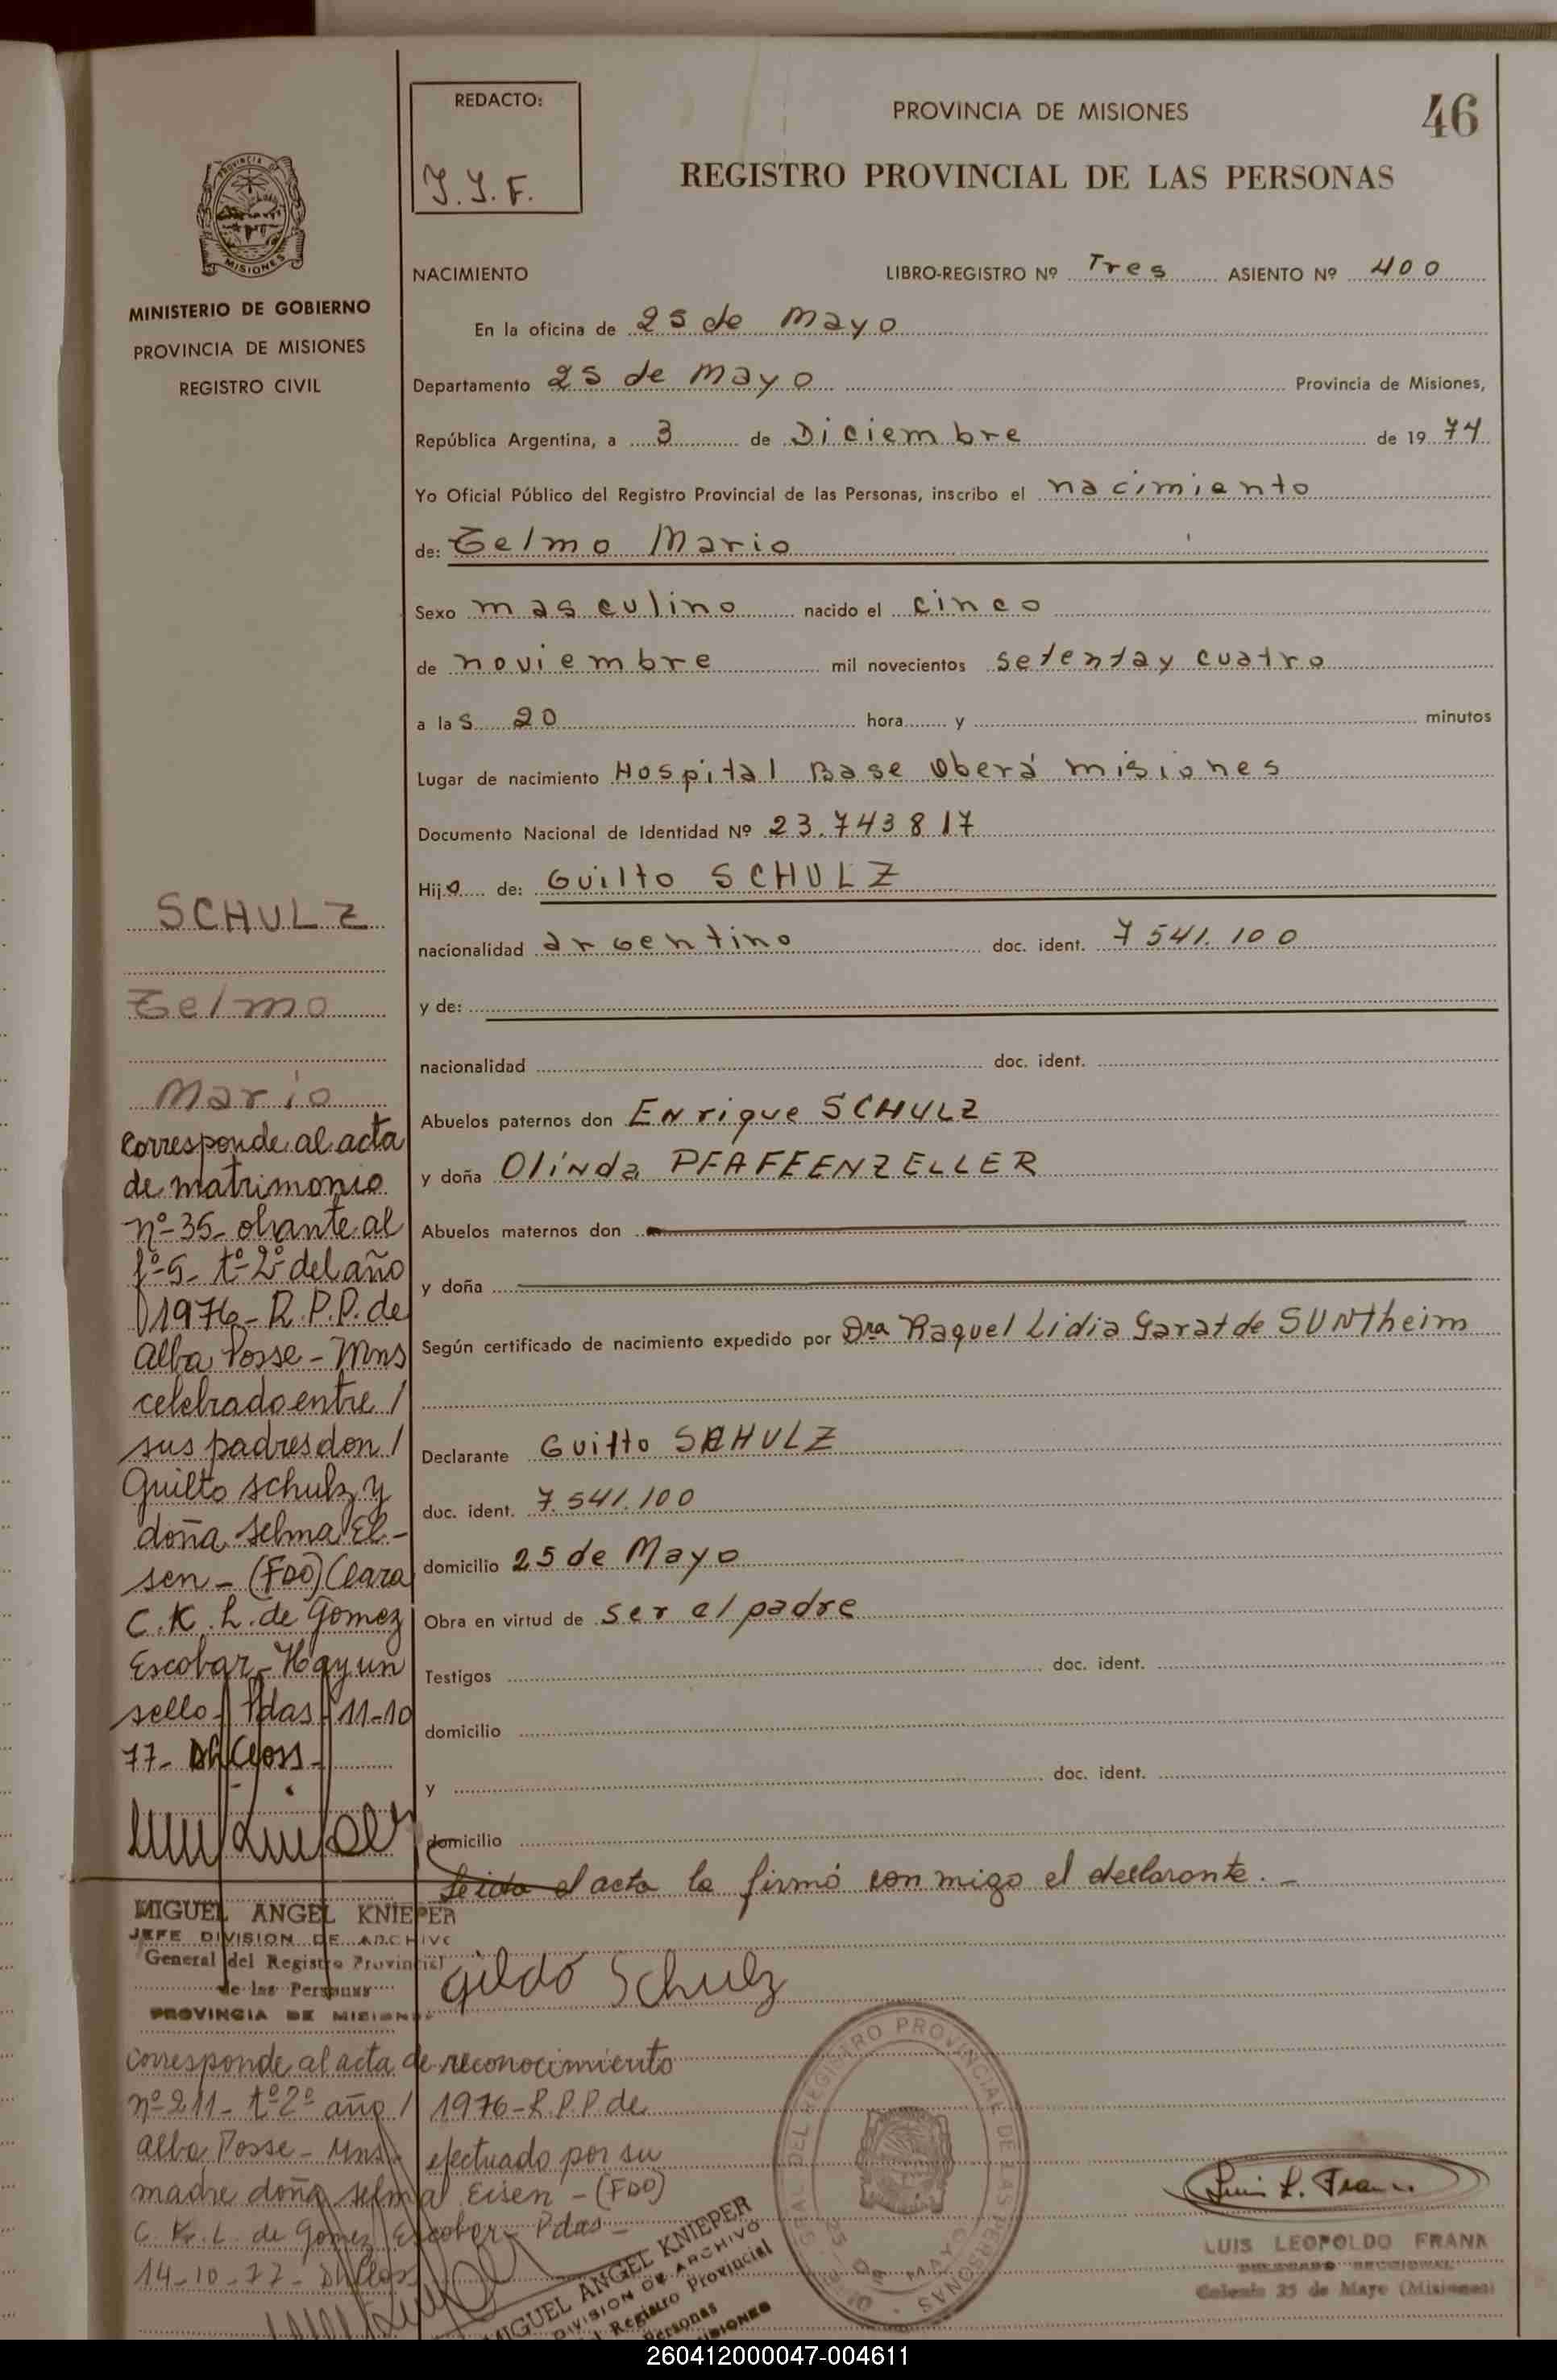 REDACTO:
J. J. F.
PROVINCIA DE MISIONES
46
REGISTRO PROVINCIAL DE LAS PERSONAS
PROVINCIA
MISIONES
MINISTERIO DE GOBIERNO
PROVINCIA DE MISIONES
REGISTRO CIVIL
NACIMIENTO LIBRO-REGISTRO Nº Tres ASIENTO Nº 400
En la oficina de 25 de Mayo
Departamento 25 de Mayo Provincia de Misiones,
República Argentina, a 3 de Diciembre de 1974
Yo Oficial Público del Registro Provincial de las Personas, inscribo el nacimiento
de: Telmo Mario
Sexo masculino nacido el cinco
de noviembre mil novecientos setenta y cuatro
a las 20 hora y minutos
Lugar de nacimiento Hospital Base Oberá misiones
Documento Nacional de Identidad Nº 23.743817
Hijo de: Guilto SCHULZ
nacionalidad argentino doc. ident. 7541.100
y de:
nacionalidad doc. ident.
Abuelos paternos don Enrique SCHULZ
y doña Olinda PFAFFENZELLER
Abuelos maternos don
y doña
Según certificado de nacimiento expedido por Dra Raquel Lidia Garat de SUNtheim
Declarante Guilto SCHULZ
doc. ident. 7.541.100
domicilio 25 de Mayo
Obra en virtud de ser el padre
Testigos doc. ident.
domicilio
y doc. ident.
domicilio
Leida el acta la firmó conmigo el declarante.-
Gildo Schulz
SCHULZ
Telmo
Mario
Corresponde al acta
de matrimonio
nº-35- obrante al
fº-5- tº-2º del año
1976- R.P.P. de
Alba Posse - Mns
celebrado entre /
sus padres don /
Guilto Schulz y
doña Selma El-
sen - (FDO) Clara
C. K. L. de Gomez
Escobar - Hay un
sello - Pdas - 11-10
77-
MIGUEL ANGEL KNIEPER
JEFE DIVISION DE ARCHIVO
General del Registro Provincial
de las Personas
PROVINCIA DE MISIONES
Corresponde al acta de reconocimiento
nº-211- tº 2º año / 1976- R.P.P. de
Alba Posse - Mns efectuado por su
madre doña Selma Eisen - (FDO)
C. K. L. de Gomez Escobar - Pdas -
14-10-77-
MIGUEL ANGEL KNIEPER
DIVISION DE ARCHIVO
Registro Provincial
Personas
REGISTRO PROVINCIAL DE LAS PERSONAS
25 DE MAYO
Luis L. Frank
LUIS LEOPOLDO FRANK
DELEGADO SECCIONAL
Colonia 25 de Mayo (Misiones)
260412000047-004611